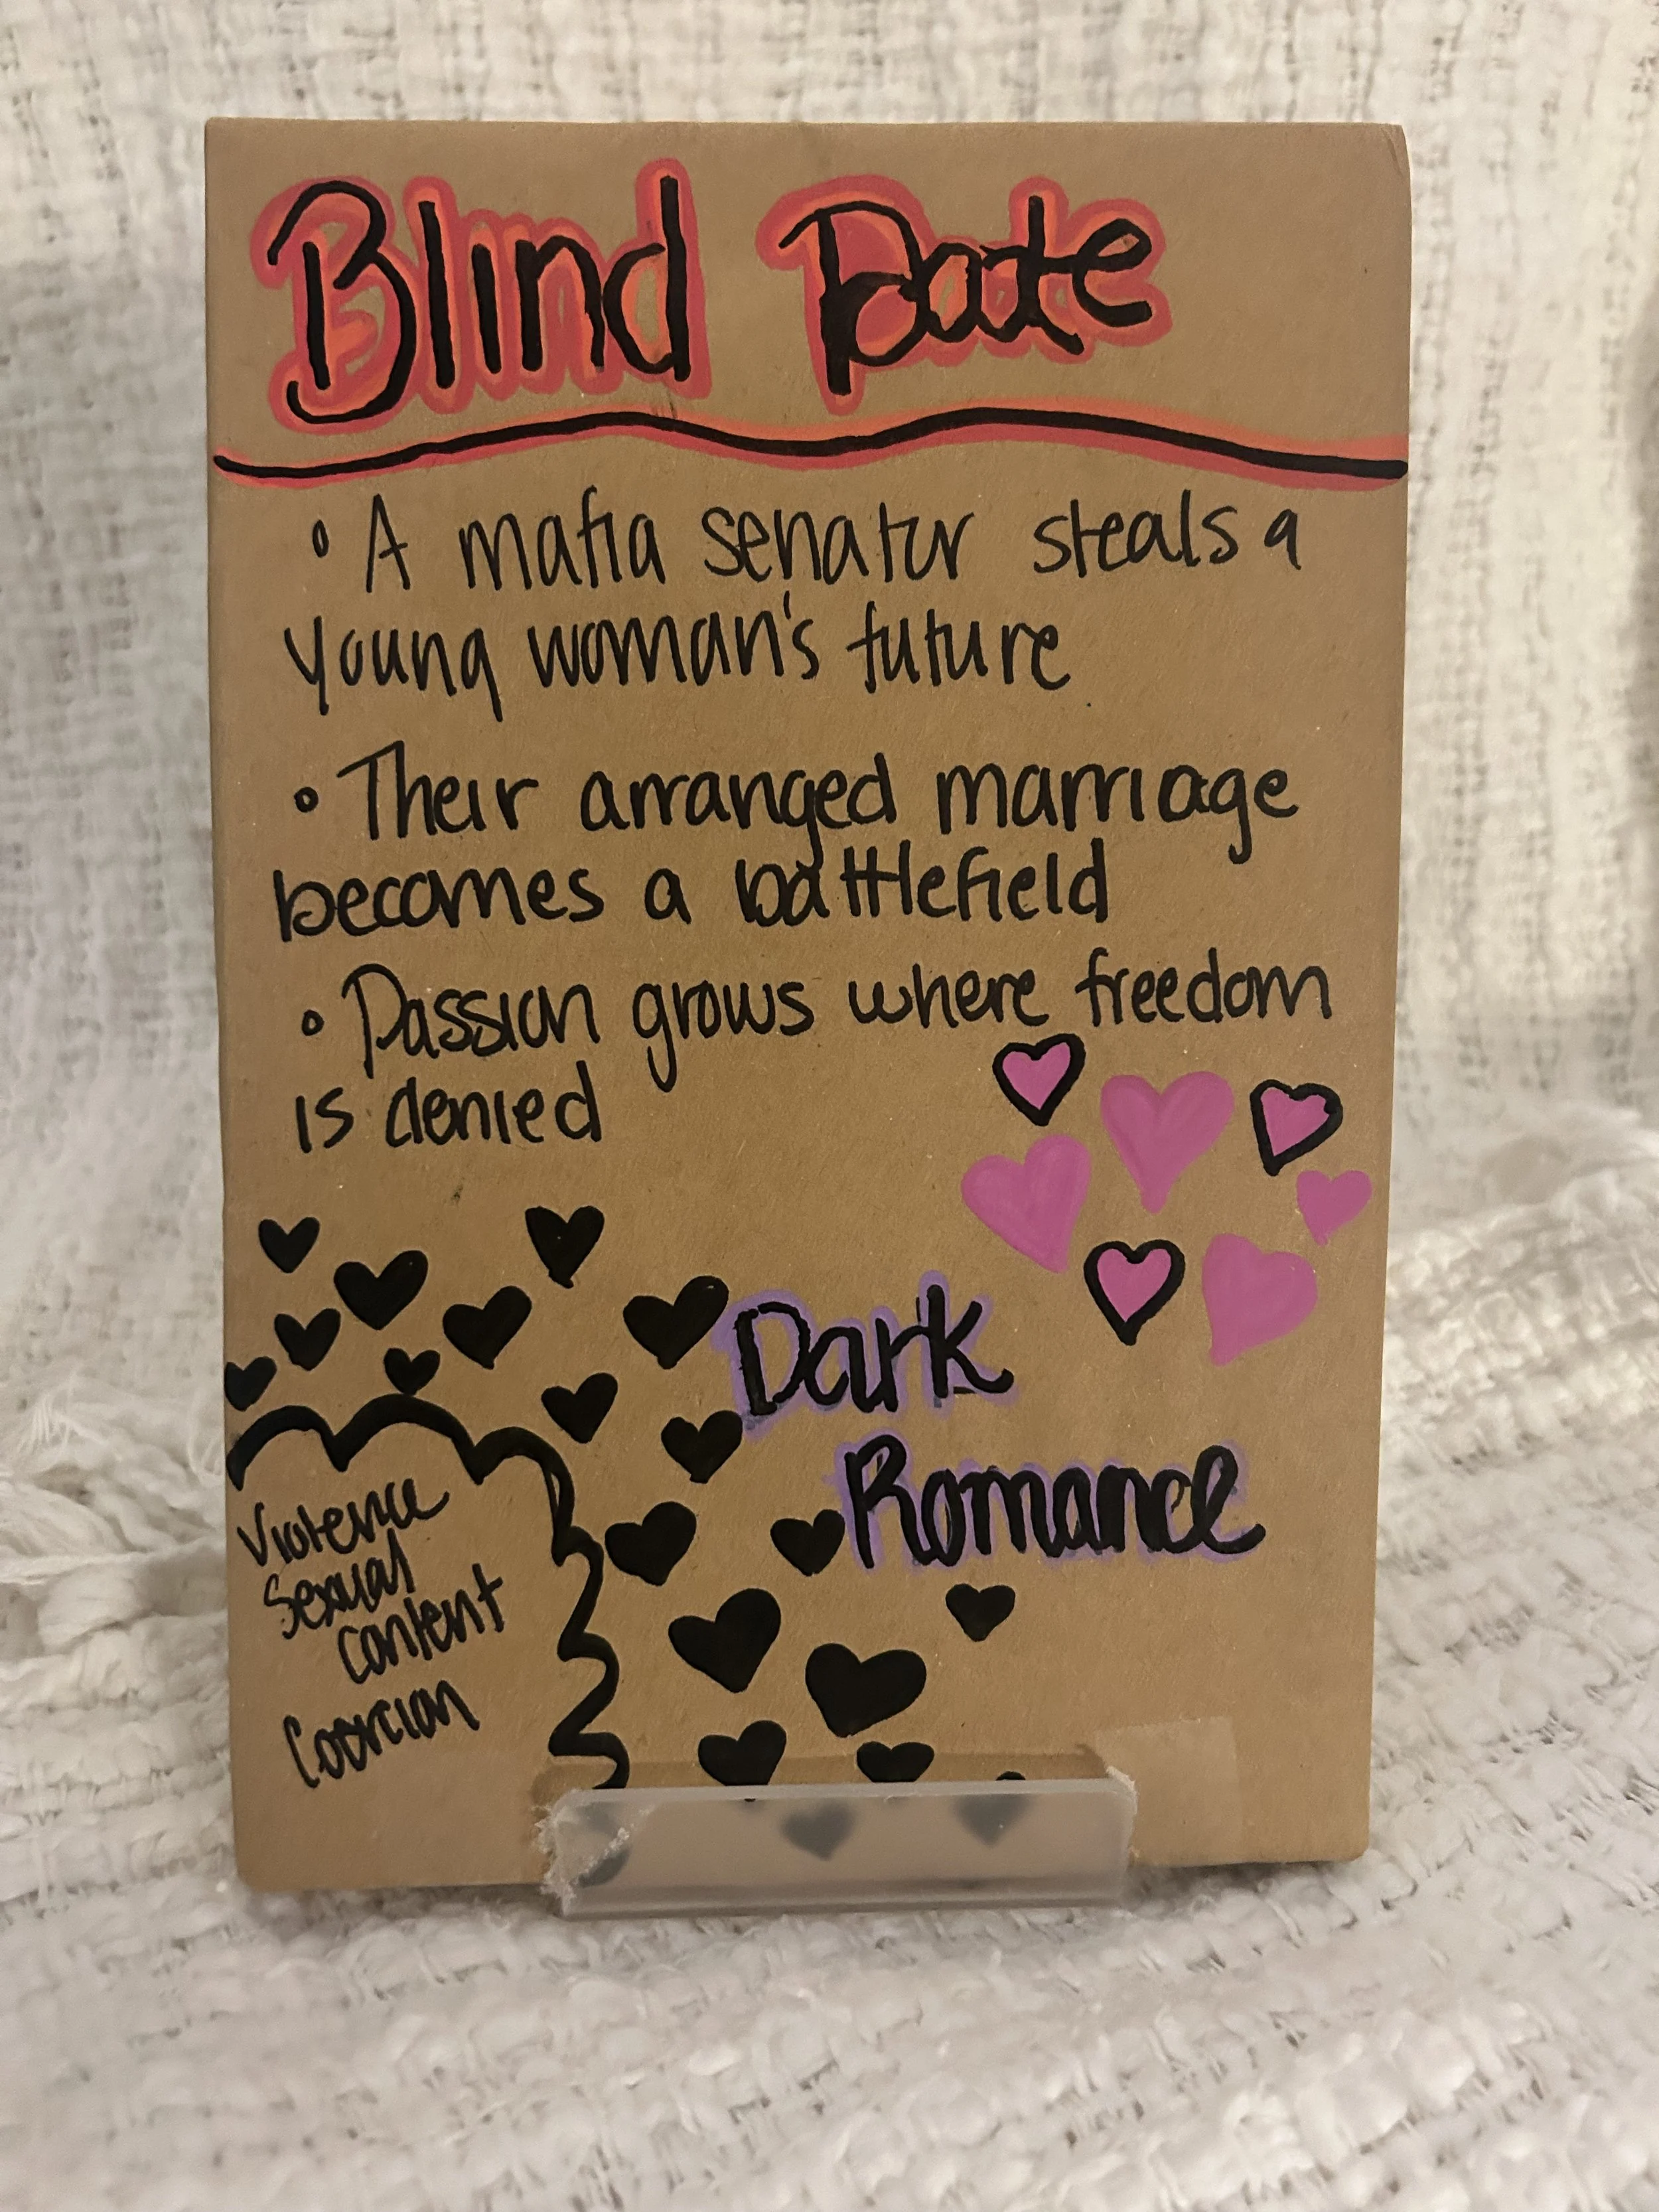 Blind Date
• A mafia senator steals a
young woman's future
• Their arranged marriage
becomes a battlefield
• Passion grows where freedom
is denied
Dark
Romance
Violence
Sexual
content
Coercion